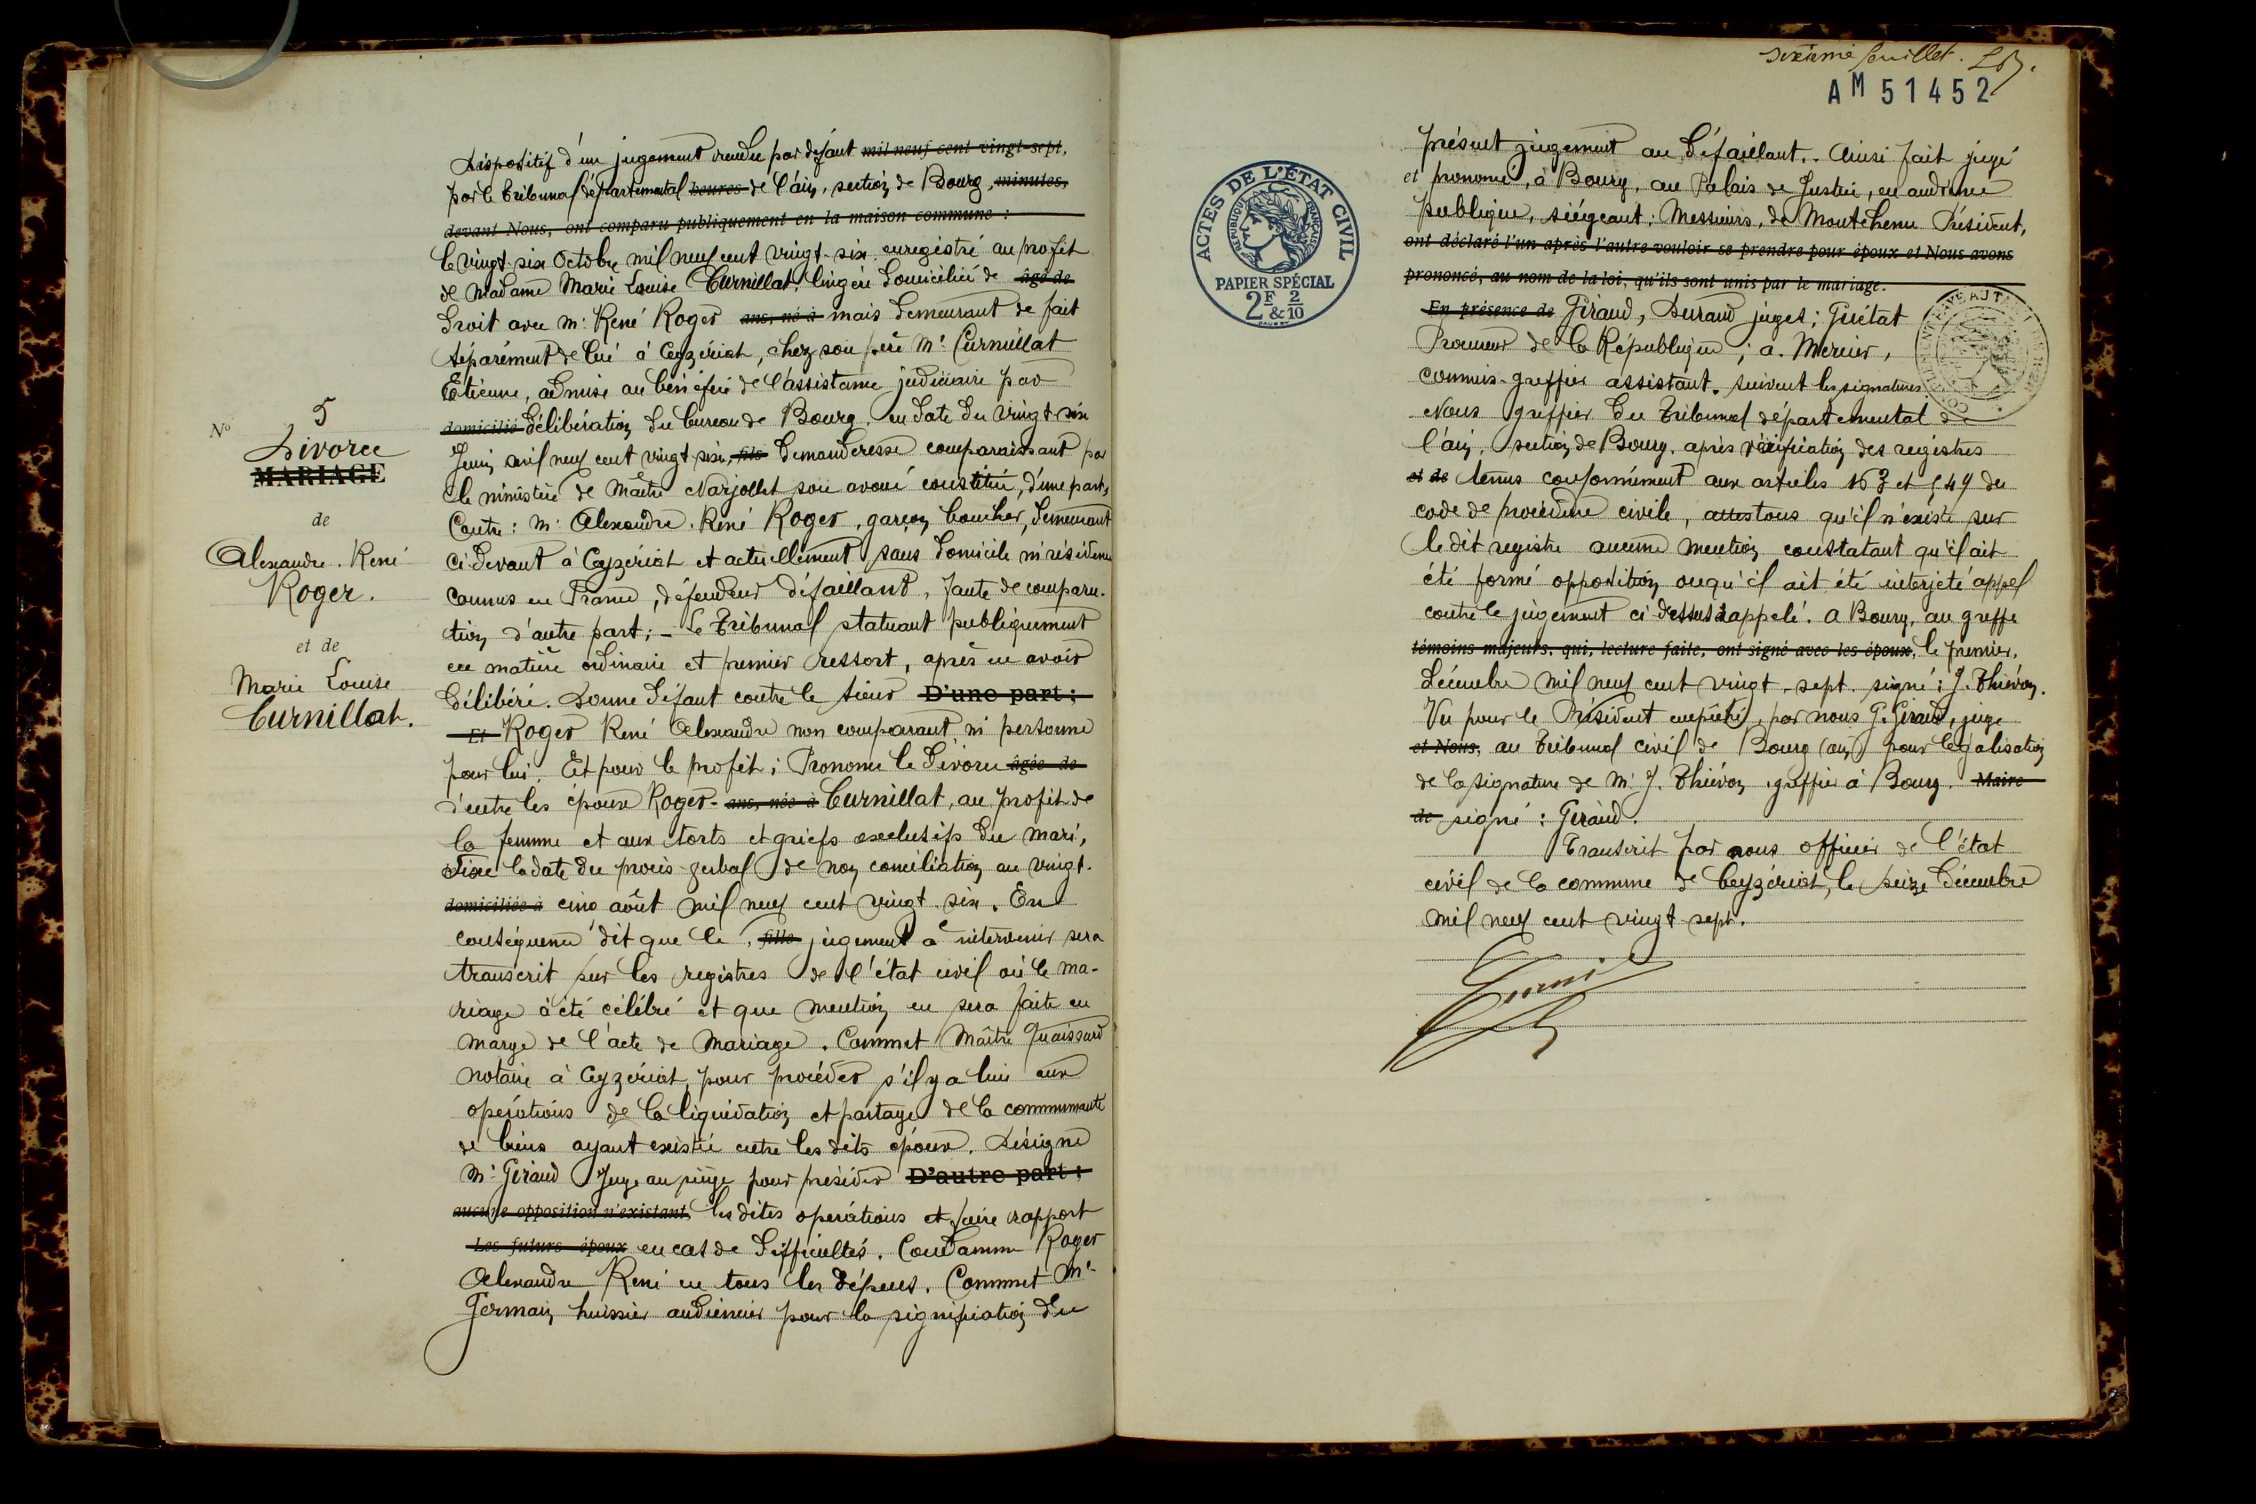 N° 5
Divorce
MARIAGE
de
Alexandre. René
Roger.
et de
Marie Louise
Curnillat.
Dispositif d'un jugement rendu par défaut mil neuf cent vingt-sept,
par le Tribunal départemental heures de l'ain, section de Bourg, minutes,
devant Nous, ont comparu publiquement en la maison commune :
le vingt-six Octobre mil neuf cent vingt-six. enregistré au profit
de Madame Marie Louise Curnillat, lingère domiciliée de âgé de
droit avec Mr René Roger ans, né à mais demeurant de fait
séparément de lui à Ceyzériat, chez son père Mr Curnillat
Etienne, admise au bénéfice de l'assistance judiciaire par
domicilié délibération du bureau de Bourg en date du vingt-six
Juin mil neuf cent vingt six, fils demanderesse comparaissant par
le ministère de Maître Narjollet son avoué constitué, d'une part,
Contre: Mr Alexandre. René Roger, garçon boucher, demeurant
ci-devant à Ceyzériat et actuellement sans domicile ni résidence
connus en France, défendeur défaillant, faute de comparu-
tion d'autre part; - Le Tribunal statuant publiquement
en matière ordinaire et premier ressort, après en avoir
délibéré. Donne défaut contre le sieur D'une part ;
Et Roger René Alexandre non comparant ni personne
pour lui. Et pour le profit; Prononce le divorce âgée de
d'entre les époux Roger- ans, née à Curnillat, au profit de
la femme et aux torts et griefs exclusifs du mari,
Fixe la date du procès-verbal de non conciliation au vingt-
domiciliée à cinq août mil neuf cent vingt six. En
conséquence dit que le , fille jugement à intervenir sera
transcrit sur les registres de l'état civil où le ma-
riage a été célébré et que mention en sera faite en
marge de l'acte de mariage. Commet Maître Quaissard
notaire à Ceyzériat, pour procéder s'il y a lieu aux
opérations de la liquidation et partage de la communauté
de biens ayant existé entre les dits époux. Désigne
Mr Giraud Juge au siège pour présider D'autre part ;
aucune opposition n'existant, les dites opérations et faire rapport
Les futurs époux en cas de difficultés. Condamne Roger
Alexandre René en tous les dépens. Commet Mr
Germain, huissier audiencier pour la signification du
dixième feuillet.
AM 51452
ACTES DE L'ÉTAT CIVIL
RÉPUBLIQUE FRANÇAISE
PAPIER SPÉCIAL
2F & 2/10
présent jugement au défaillant. Ainsi fait jugé
et prononcé, à Bourg, au Palais de Justice, en audience
publique, siégeant: Messieurs, de Montchenu Président,
ont déclaré l'un après l'autre vouloir se prendre pour époux et Nous avons
prononcé, au nom de la loi, qu'ils sont unis par le mariage.
En présence de Giraud, Durand juges; Guétat
Procureur de la République; A. Mercier,
commis-greffier assistant. suivent les signatures.
Nous greffier du Tribunal départemental de
l'ain, section de Bourg, après vérification des registres
et de tenus conformément aux articles 163 et 549 du
code de procédure civile, attestons qu'il n'existe sur
le dit registre aucune mention constatant qu'il ait
été formé opposition ou qu'il ait été interjeté appel
contre le jugement ci-dessus rappelé. A Bourg, au greffe
témoins majeurs, qui, lecture faite, ont signé avec les époux, le premier,
Décembre mil neuf cent vingt-sept. signé: J. Thiévon.
Vu pour le Président empêché, par nous G. Giraud, juge
et Nous, au Tribunal civil de Bourg (ain) pour légalisation
de la signature de Mr J. Thiévon, greffier à Bourg. Maire
de signé: Giraud.
Transcrit par nous officier de l'état
civil de la commune de Ceyzériat, le seize Décembre
mil neuf cent vingt sept.